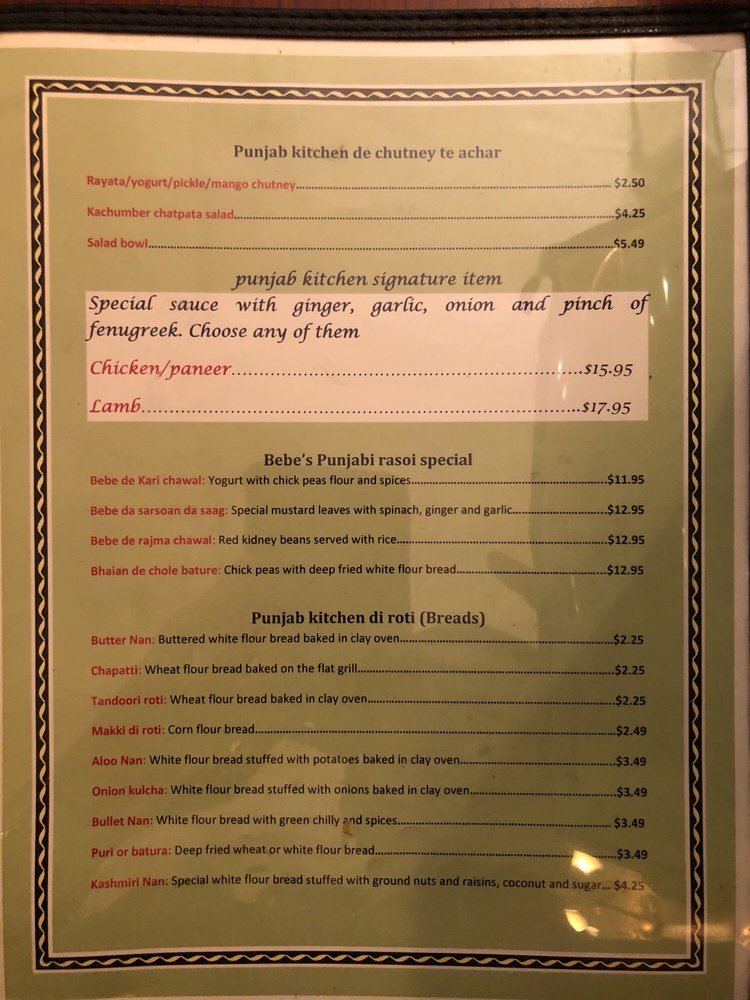 Punjab kitchen de chutney te achar
Rayata/yogurt/pickle/mango chutney........ $2.50
Kachumber chatpata salad........$4.25
Salad bowl........$5.49
punjab kitchen signature item
Special sauce with ginger, garlic, onion and pinch of
fenugreek. Choose any of them
Chicken/paneer........$15.95
Lamb........$17.95
Bebe's Punjabi rasoi special
Bebe de Kari chawal: Yogurt with chick peas flour and spices........$11.95
Bebe da sarsoan da saag: Special mustard leaves with spinach, ginger and garlic........$12.95
Bebe de rajma chawal: Red kidney beans served with rice........$12.95
Bhaian de chole bature: Chick peas with deep fried white flour bread........$12.95
Punjab kitchen di roti (Breads)
Butter Nan: Buttered white flour bread baked in clay oven........$2.25
Chapatti: Wheat flour bread baked on the flat grill........$2.25
Tandoori roti: Wheat flour bread baked in clay oven........$2.25
Makki di roti: Corn flour bread........$2.49
Aloo Nan: White flour bread stuffed with potatoes baked in clay oven........$3.49
Onion kulcha: White flour bread stuffed with onions baked in clay oven........$3.49
Bullet Nan: White flour bread with green chilly and spices........$3.49
Puri or batura: Deep fried wheat or white flour bread........$3.49
Kashmiri Nan: Special white flour bread stuffed with ground nuts and raisins, coconut and sugar... $4.25